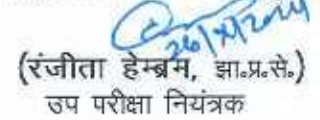 26/11/2024
(रंजीता हेम्ब्रम, झा.प्र.से.)
उप परीक्षा नियंत्रक